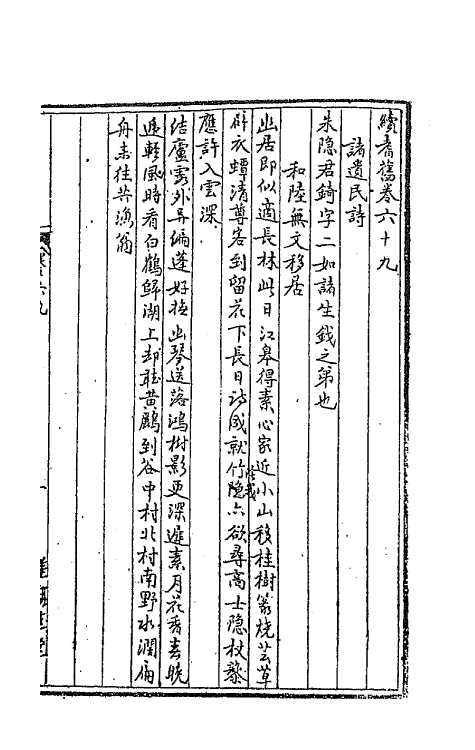 續耆舊卷六十九
諸遺民詩
朱隐君錡字二如諸生鉞之第也
和陸無文移居
幽居即似適長林此日江皋得素心家近小山移桂樹篆燒芸草
辟衣蟫清尊客到留花下長日詩成就竹隐亦欲尋高士隐杖藜
應許入雲深
結廬雲外異編蓬好撫幽琴送落鴻樹影更深遲素月花香春晚
逗輕風時看白鶴歸湖上却聴黄鸝到谷中村北村南野水濶扁
舟来往共漁翁